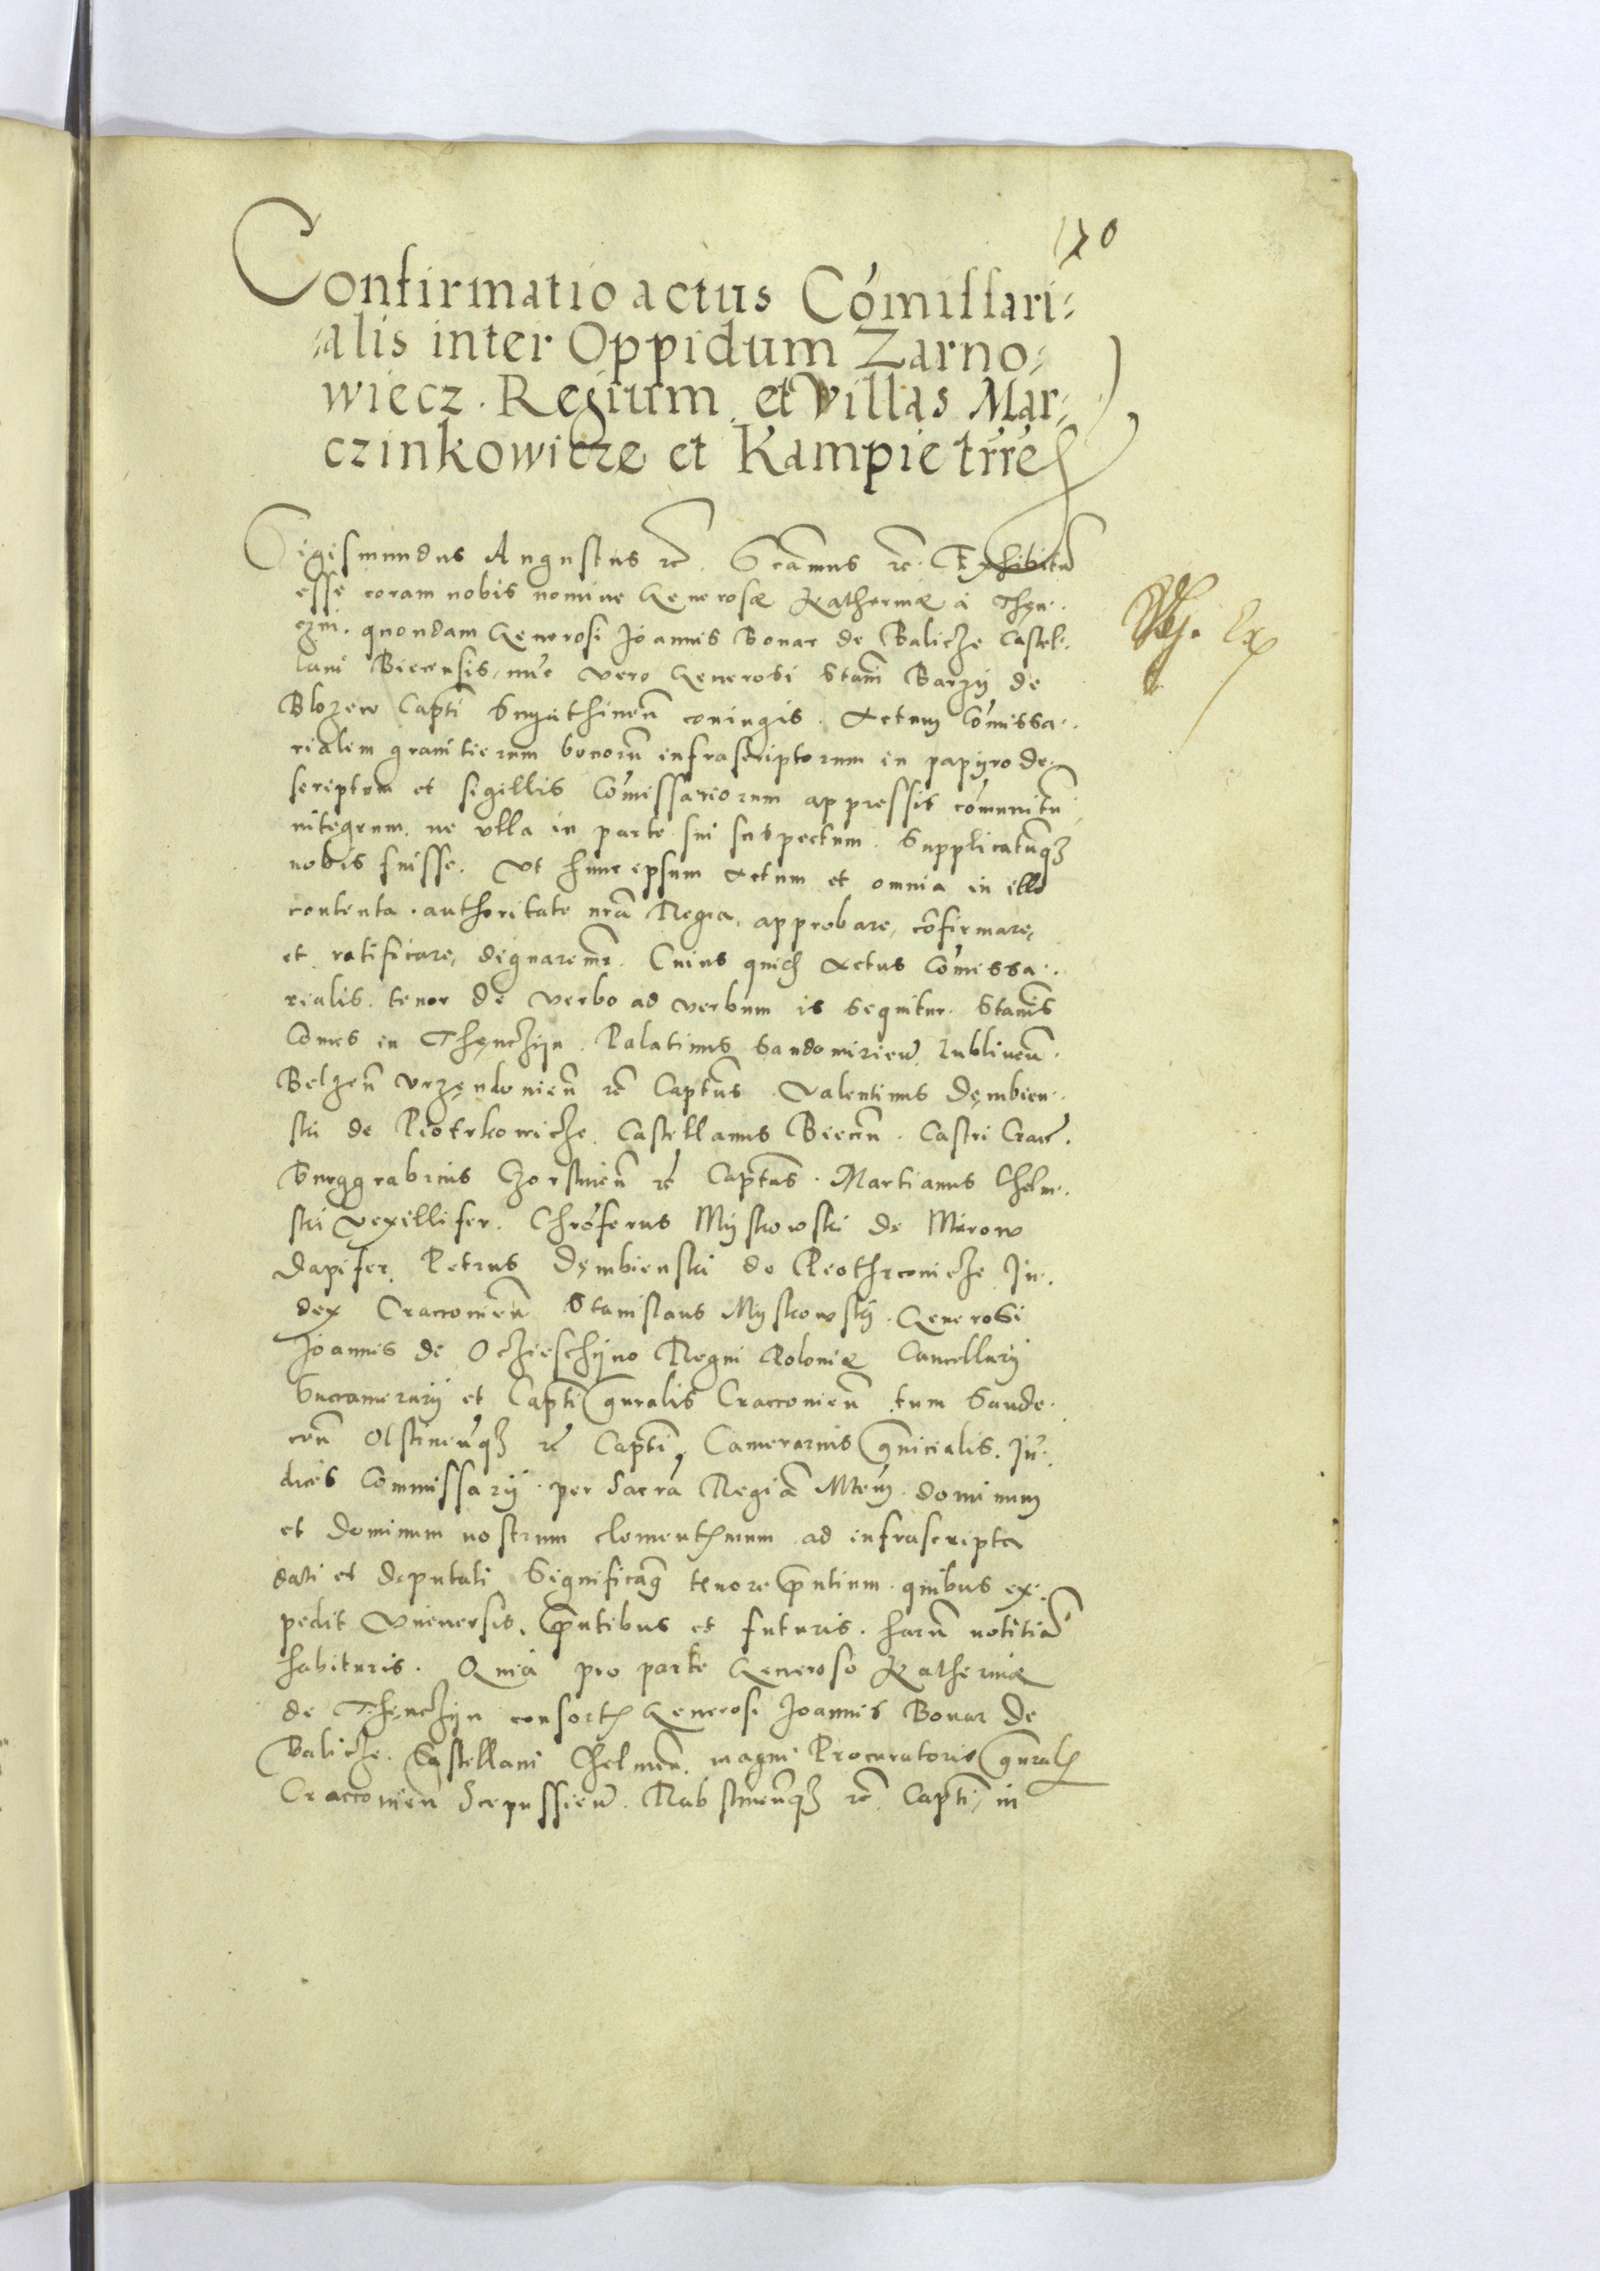 170
Confirmatio actus Cómissari=
=alis inter Oppidum Zarno=
wiecz. Regium et villas Mar=
czinkowicze et Kampie trre
Sigismundus Augustus rc. Scāmus rc. Exhibitū
esse coram nobis nomine Generosæ Katherinæ à Thęn.
czin. quondam Generosi Joannis Bonar de Balicze Castel.
lani Biecensis, nūc vero Generosi Stani Barzy de
Blozew Capti Snyathinen̄ coniugis. Actum Cōmissa.
rialem granitierum bonorū infrascriptorum in papyro de
scriptum et sigillis Cōmissariorum appressis cōmunitū
integrum. ne vlla in parte sui suspectum. Supplicatūqȝ
nobis fuisse. Vt hunc ipsum Actum et omnia in illo
contenta. authoritate nrā Regia, approbare, cōfirmare,
et ratificare, dignaremr. Cuius quid Actus Cōmissa.
rialis. tenor de verbo ad verbum is sequitur. Stanis
Comes in Thęnczyn. Palatinus Sandomirien̄ Lublinen̄.
Belzen̄ Vrzędouien̄ rc Captus. Valentinus Dęmbien.
ski de Piotrkowicze. Castellanus Biecen̄. Castri Crac̄.
Burggrabius Czorstinen̄ rc Captus. Martianus Chelm.
ski Vexillifer. Chrōferus Myskowski de Mirow
Dapifer. Petrus Dęmbienski de Piothrcouicze Iu.
dex Cracouien̄ Stanislaus Myskowsky. Generosi
Joannis de Oczieschyno Regni Poloniæ Cancellarij
Succamerarij et Capti gnralis Cracouien̄ tum Sande.
cen̄ Olstinen̄qȝ rc Capti, Camerarius gnicialis. Iu.
dices Commissarij. per Sacrā Regiā Mtem. dominum
et Dominum nostrum clementissimum ad infrascripta
dati et deputati Significamq tenore pntium. quibus ex.
pedit Vniuersis. pntibus et futuris. harū notitiā
habituris. Quia pro parte Generose Katherinæ
de Thęnczyn consortis Generosi Joannis Bonar de
Balicze. Castellani Chelmen̄. magni Procuratoris gnralis
Cracouien̄ Scepussien̄. Rabstinen̄qȝ rc. Capti, in